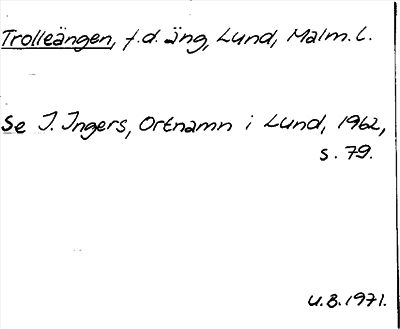 Trolleängen, f.d. äng, Lund, Malm. l.
Se I. Ingers, Ortnamn i Lund, 1962,
s. 79.
U.B. 1971.